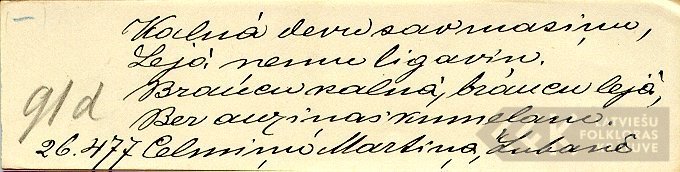 Kalnâ devu sav masiņu,
Lejâ nemu ligaviņ.
Braucu kalnâ, braucu lejâ,
Ber auzinas kumelam.
91d
26.477 Celmiņu Martiņa, Lubanê
LATVIEŠU
FOLKLORAS
KRĀTUVE